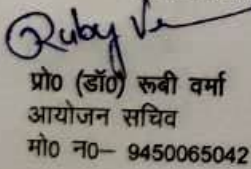 Ruby Ve
प्रो0 (डॉ0) रूबी वर्मा
आयोजन सचिव
मो0 न0– 9450065042